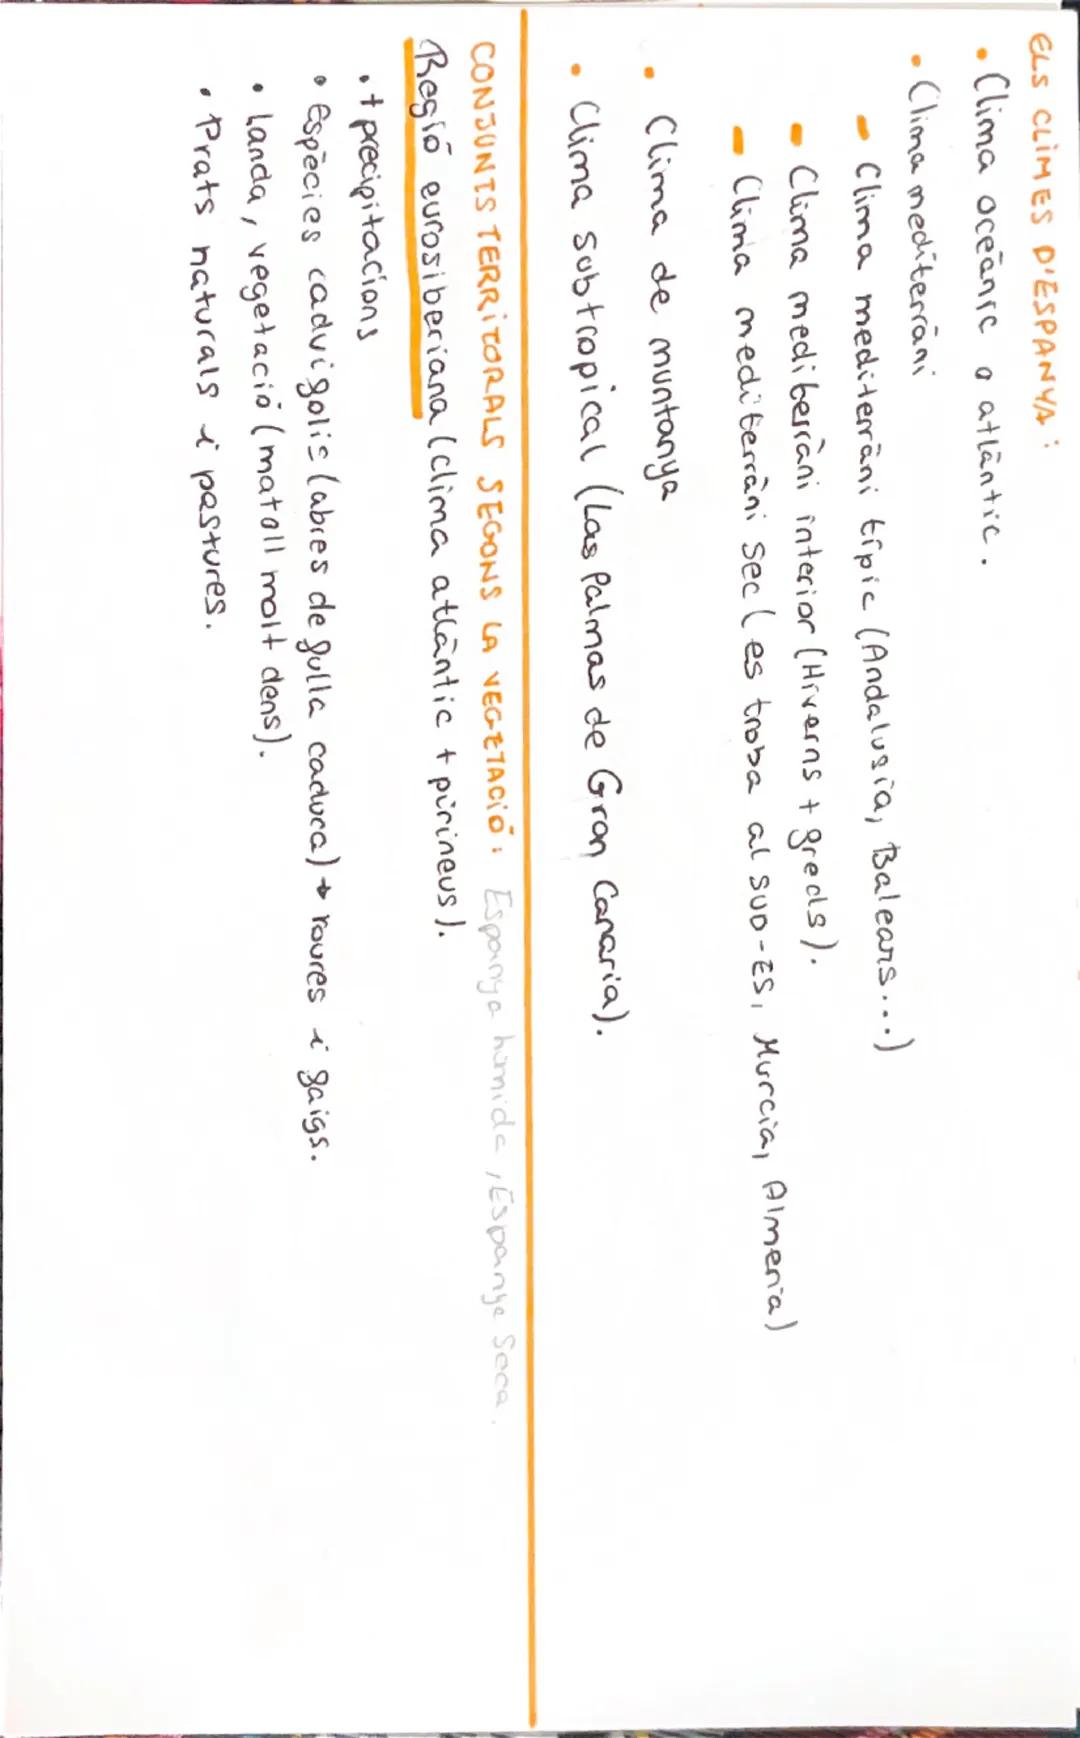 ELS CLIMES D'ESPANYA:
• Clima oceànic o atlàntic.
• Clima mediterràni
- Clima mediterràni típic (Andalusia, Balears...)
- Clima mediterràni interior (Hiverns + greds).
- Clima mediterràni sec (es troba al SUD-ES, Murcia, Almeria)
• Clima de muntanya
• Clima subtropical (Las Palmas de Gran Canaria).
CONJUNTS TERRITORALS SEGONS LA VEGETACIÓ: Espanya humida, Espanya Seca.
Regió eurosiberiana (clima atlàntic + pirineus).
• + precipitacions
• Espècies caducifolis (abres de fulla caduca) → roures i faigs.
• Landa, vegetació (matoll molt dens).
• Prats naturals i pastures.